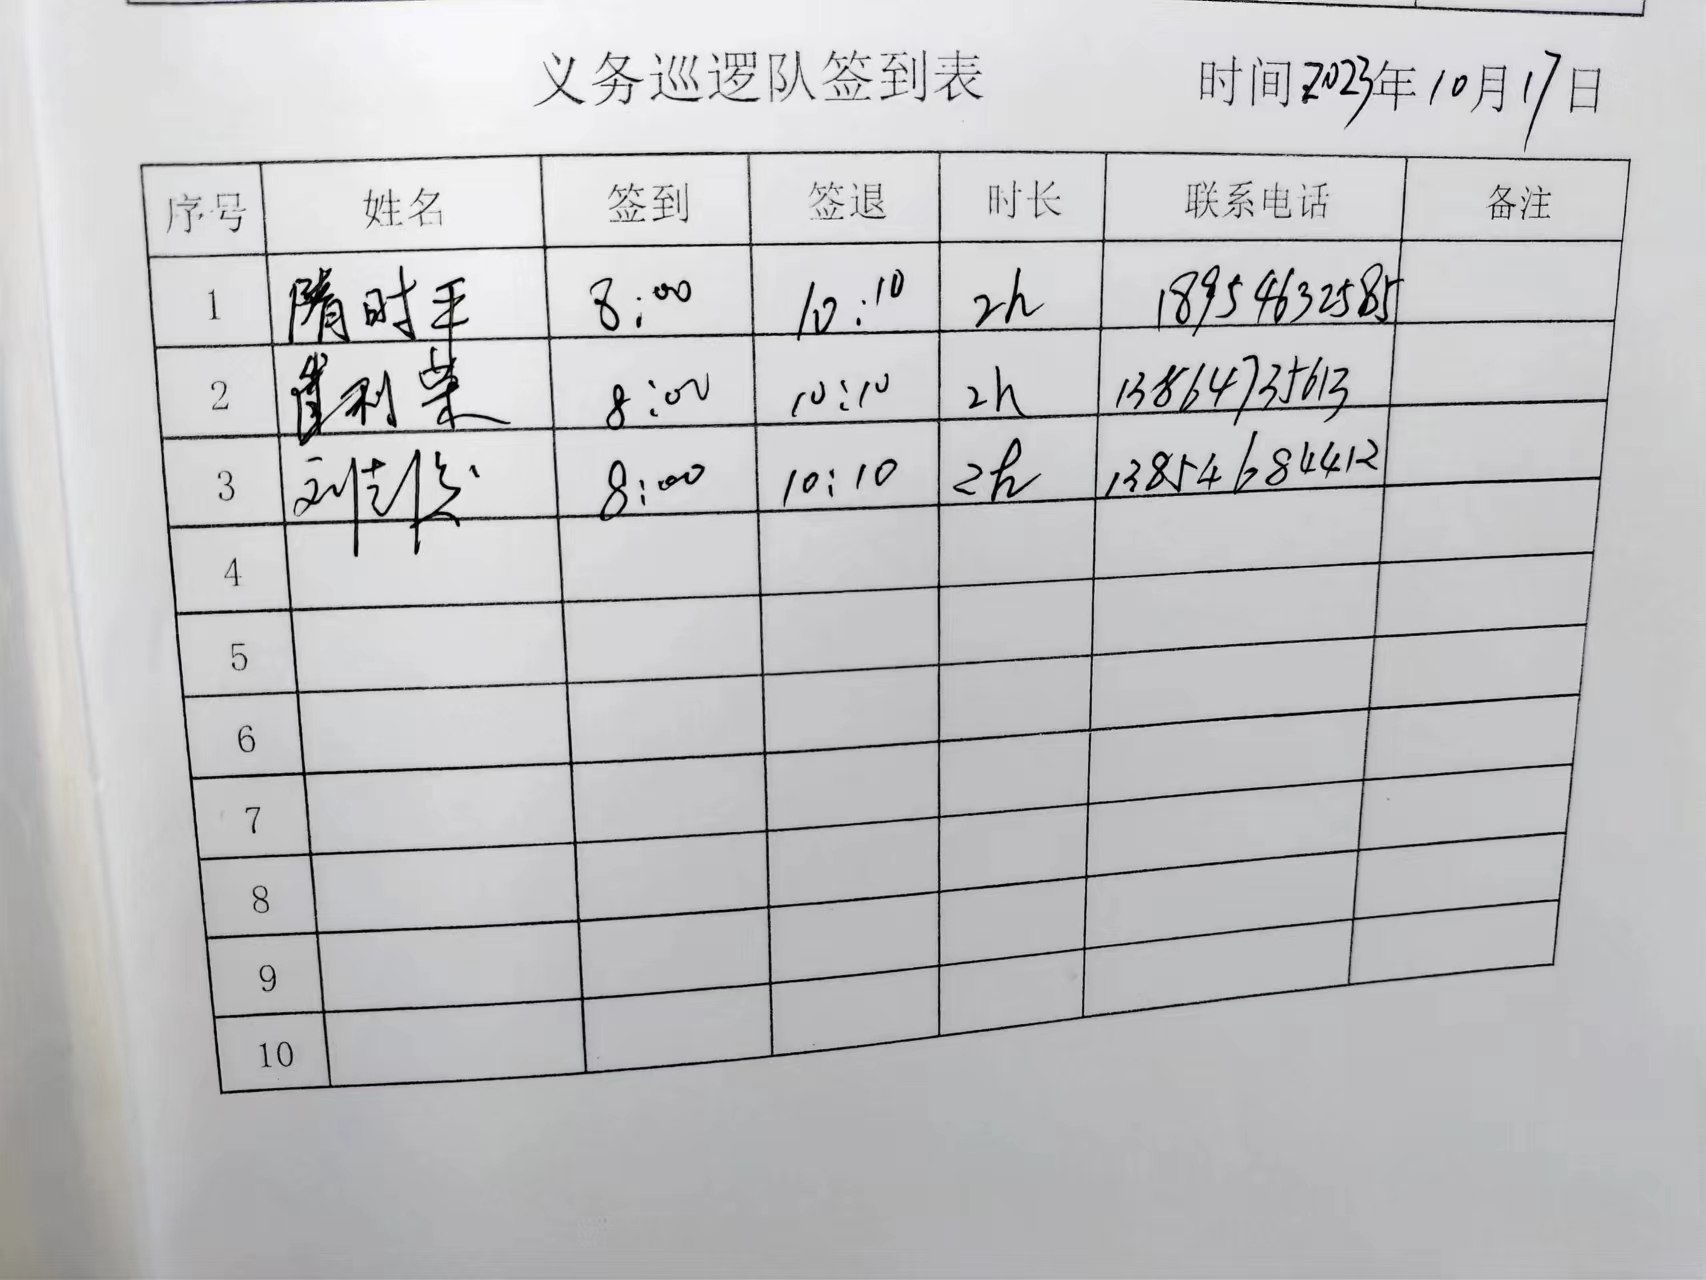 义务巡逻队签到表 时间2023年10月17日
序号 姓名 签到 签退 时长 联系电话 备注
1 隋时平 8:00 10:10 2h 18954632585
2 崔利荣 8:00 10:10 2h 13864735613
3 刘 8:00 10:10 2h 13854684412
4
5
6
7
8
9
10